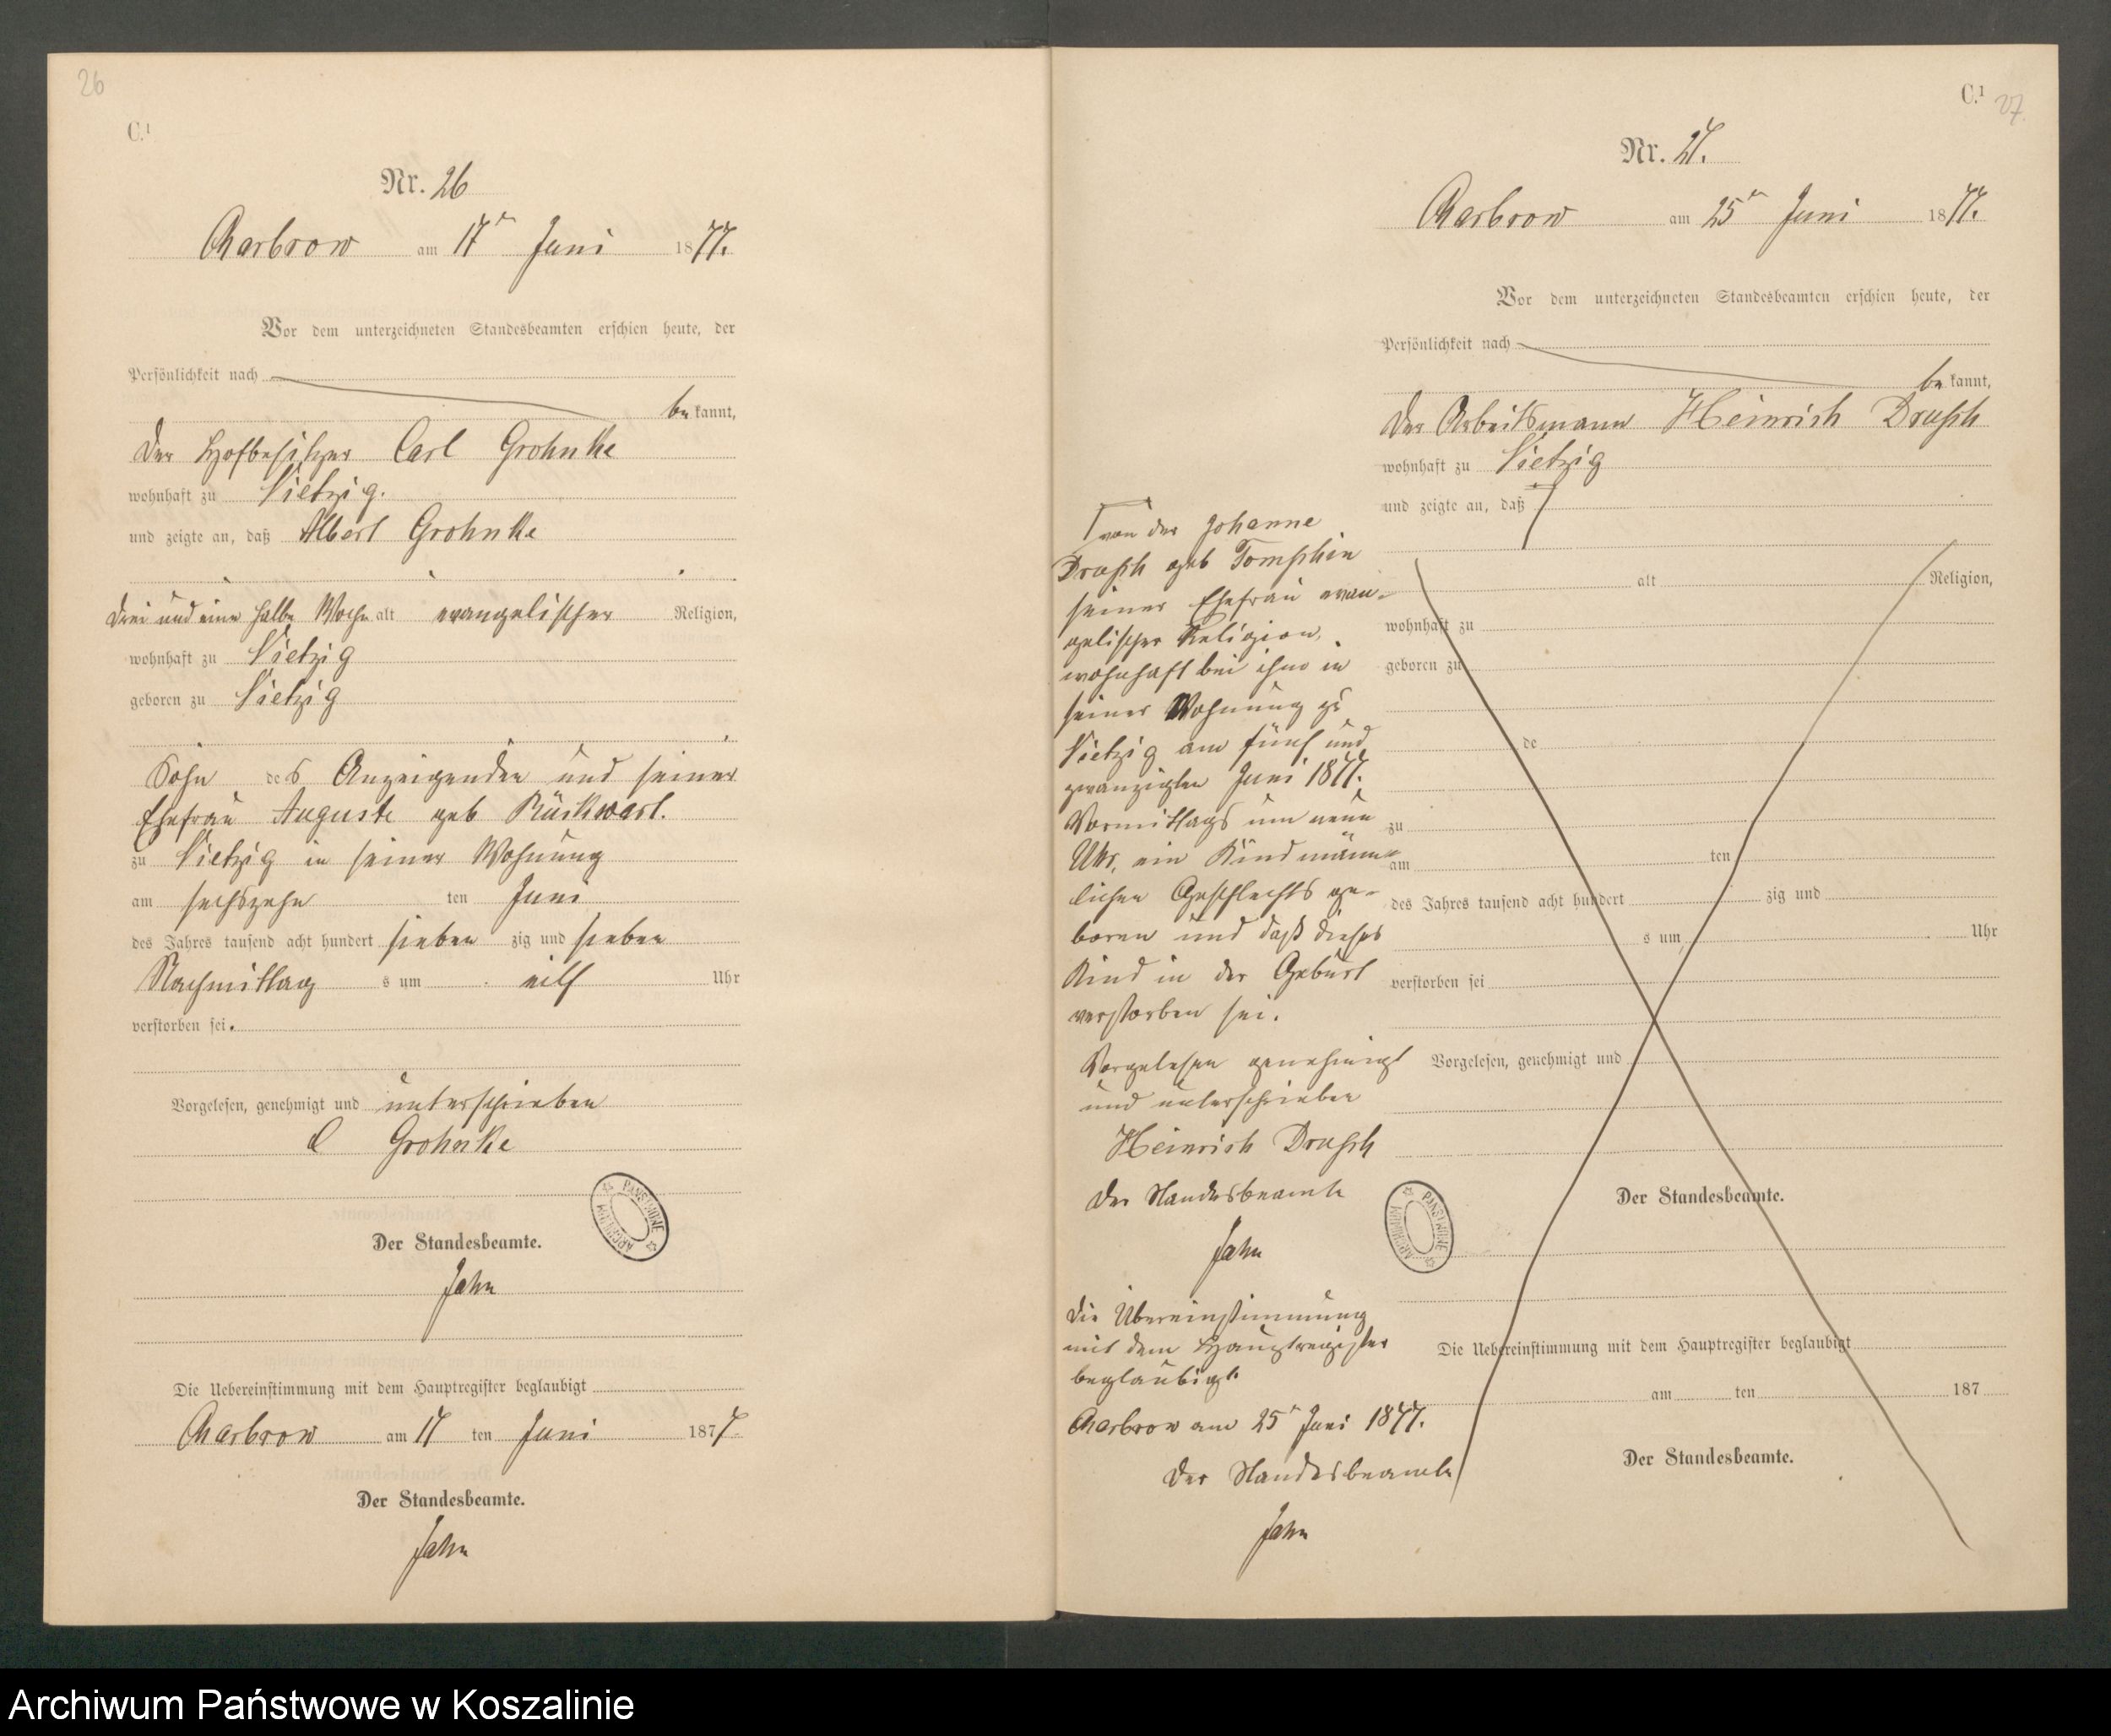 26
C.1
Nr. 26
Charbrow am 17ten Juni 1877.
Vor dem unterzeichneten Standesbeamten erschien heute, der
Persönlichkeit nach
bekannt,
der Hofbesitzer Carl Grohnke
wohnhaft zu Vietzig.
und zeigte an, daß Albert Grohnke
drei und eine halbe Woche alt evangelischer Religion,
wohnhaft zu Vietzig
geboren zu Vietzig
Sohn des Anzeigenden und seiner
Ehefrau Auguste geb Rückwart.
zu Vietzig in seiner Wohnung
am sechszehn ten Juni
des Jahres tausend acht hundert sieben zig und sieben
Nachmittag s um eilf Uhr
verstorben sei.
Vorgelesen, genehmigt und unterschrieben
C Grohnke
Der Standesbeamte.
Jahn
Die Uebereinstimmung mit dem Hauptregister beglaubigt
Charbrow am 17 ten Juni 1877.
Der Standesbeamte.
Jahn
ARCHIWUM PAŃSTWOWE
C.1 27.
Nr. 27.
Charbrow am 25ten Juni 1877.
Vor dem unterzeichneten Standesbeamten erschien heute, der
Persönlichkeit nach
bekannt,
der Arbeitsmann Heinrich
wohnhaft zu Vietzig
und zeigte an, daß
alt Religion,
wohnhaft zu
geboren zu
de
zu
am ten
des Jahres tausend acht hundert zig und
s um Uhr
verstorben sei
Vorgelesen, genehmigt und
Der Standesbeamte.
Die Uebereinstimmung mit dem Hauptregister beglaubigt
am ten 187
Der Standesbeamte.
von der Johanne
geb
seiner Ehefrau evan-
gelischer Religion,
wohnhaft bei ihm in
seiner Wohnung zu
Vietzig am fünf und
zwanzigten Juni 1877.
Vormittags um neun
Uhr, ein Kind männ-
lichen Geschlechts ge-
boren und daß dieses
Kind in der Geburt
verstorben sei.
Vorgelesen genehmigt
und unterschrieben
Heinrich
Der Standesbeamte
Jahn
Die Übereinstimmung
mit dem Hauptregister
beglaubigt.
Charbrow am 25ten Juni 1877.
Der Standesbeamte
Jahn
ARCHIWUM PAŃSTWOWE
Archiwum Państwowe w Koszalinie